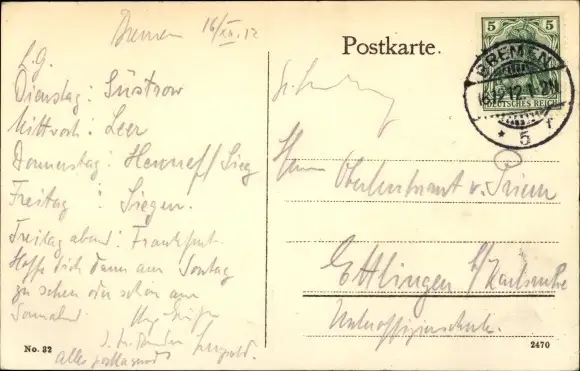 Bremen 16/XII.12
L.G.
Dienstag: Güstrow
Mittwoch: Leer
Donnerstag: Hennef/Sieg
Freitag : Siegen.
Freitag abend: Frankfurt.
Hoffe dich dann am Sontag
zu sehen oder schon am
Sonnabend.
Leopold.
alles postlagernd
No. 32
Postkarte.
5 5
DEUTSCHES REICH
BREMEN
16.12.12.1-2N
* 5 f
Herrn Oberleutnant v.
Ettlingen b/Karlsruhe
Unteroffizierschule.
2470